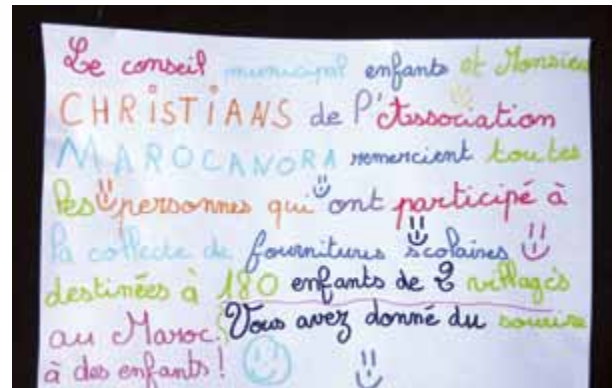 Le conseil municipal enfants et Monsieur
CHRiSTiANS de l'Association
MAROCANORA remercient toutes
les personnes qui ont participé à
la collecte de fournitures scolaires
destinées à 180 enfants de 2 villages
au Maroc. Vous avez donné du sourire
à des enfants !